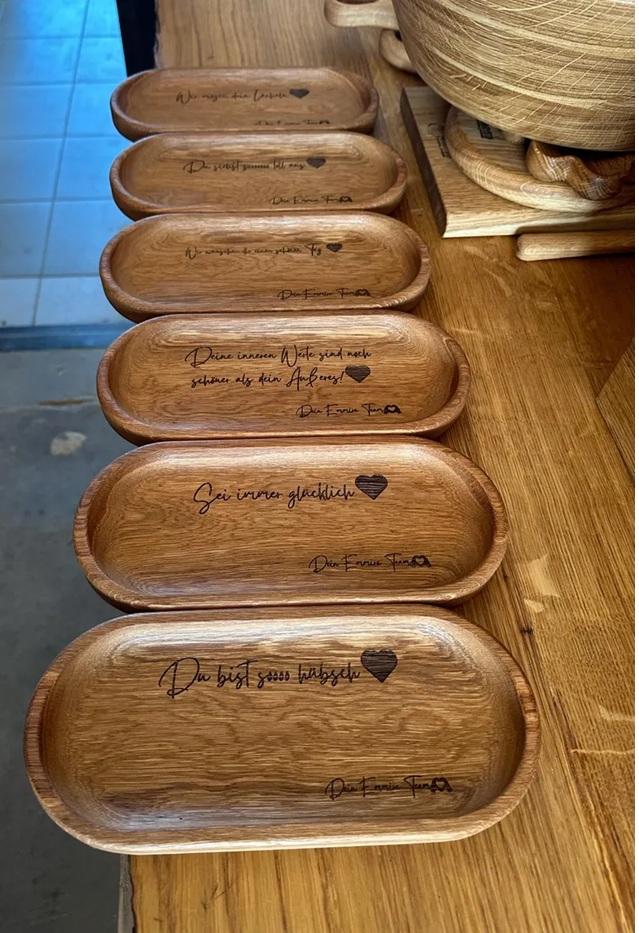 Wir mögen dein Lächeln
Du siehst soooooo toll aus
Dein Emmire Team
Wir wünschen dir einen schönen Tag
Dein Emmire Team
Deine inneren Werte sind noch
schöner als dein Äußeres!
Dein Emmire Team
Sei immer glücklich
Dein Emmire Team
Du bist soooo hübsch
Dein Emmire Team